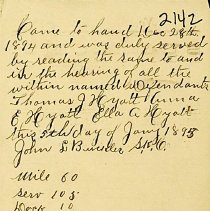 2142
Came to hand Dec 28th
1894 and was duly served
by reading the same to and
in the hearing of all the
within named Defendants
Thomas J Hyatt Anna
E Hyatt Ella A Hyatt
this 5th day of Jany 1895
John S
Mile 60
Serv 105
Dock 10